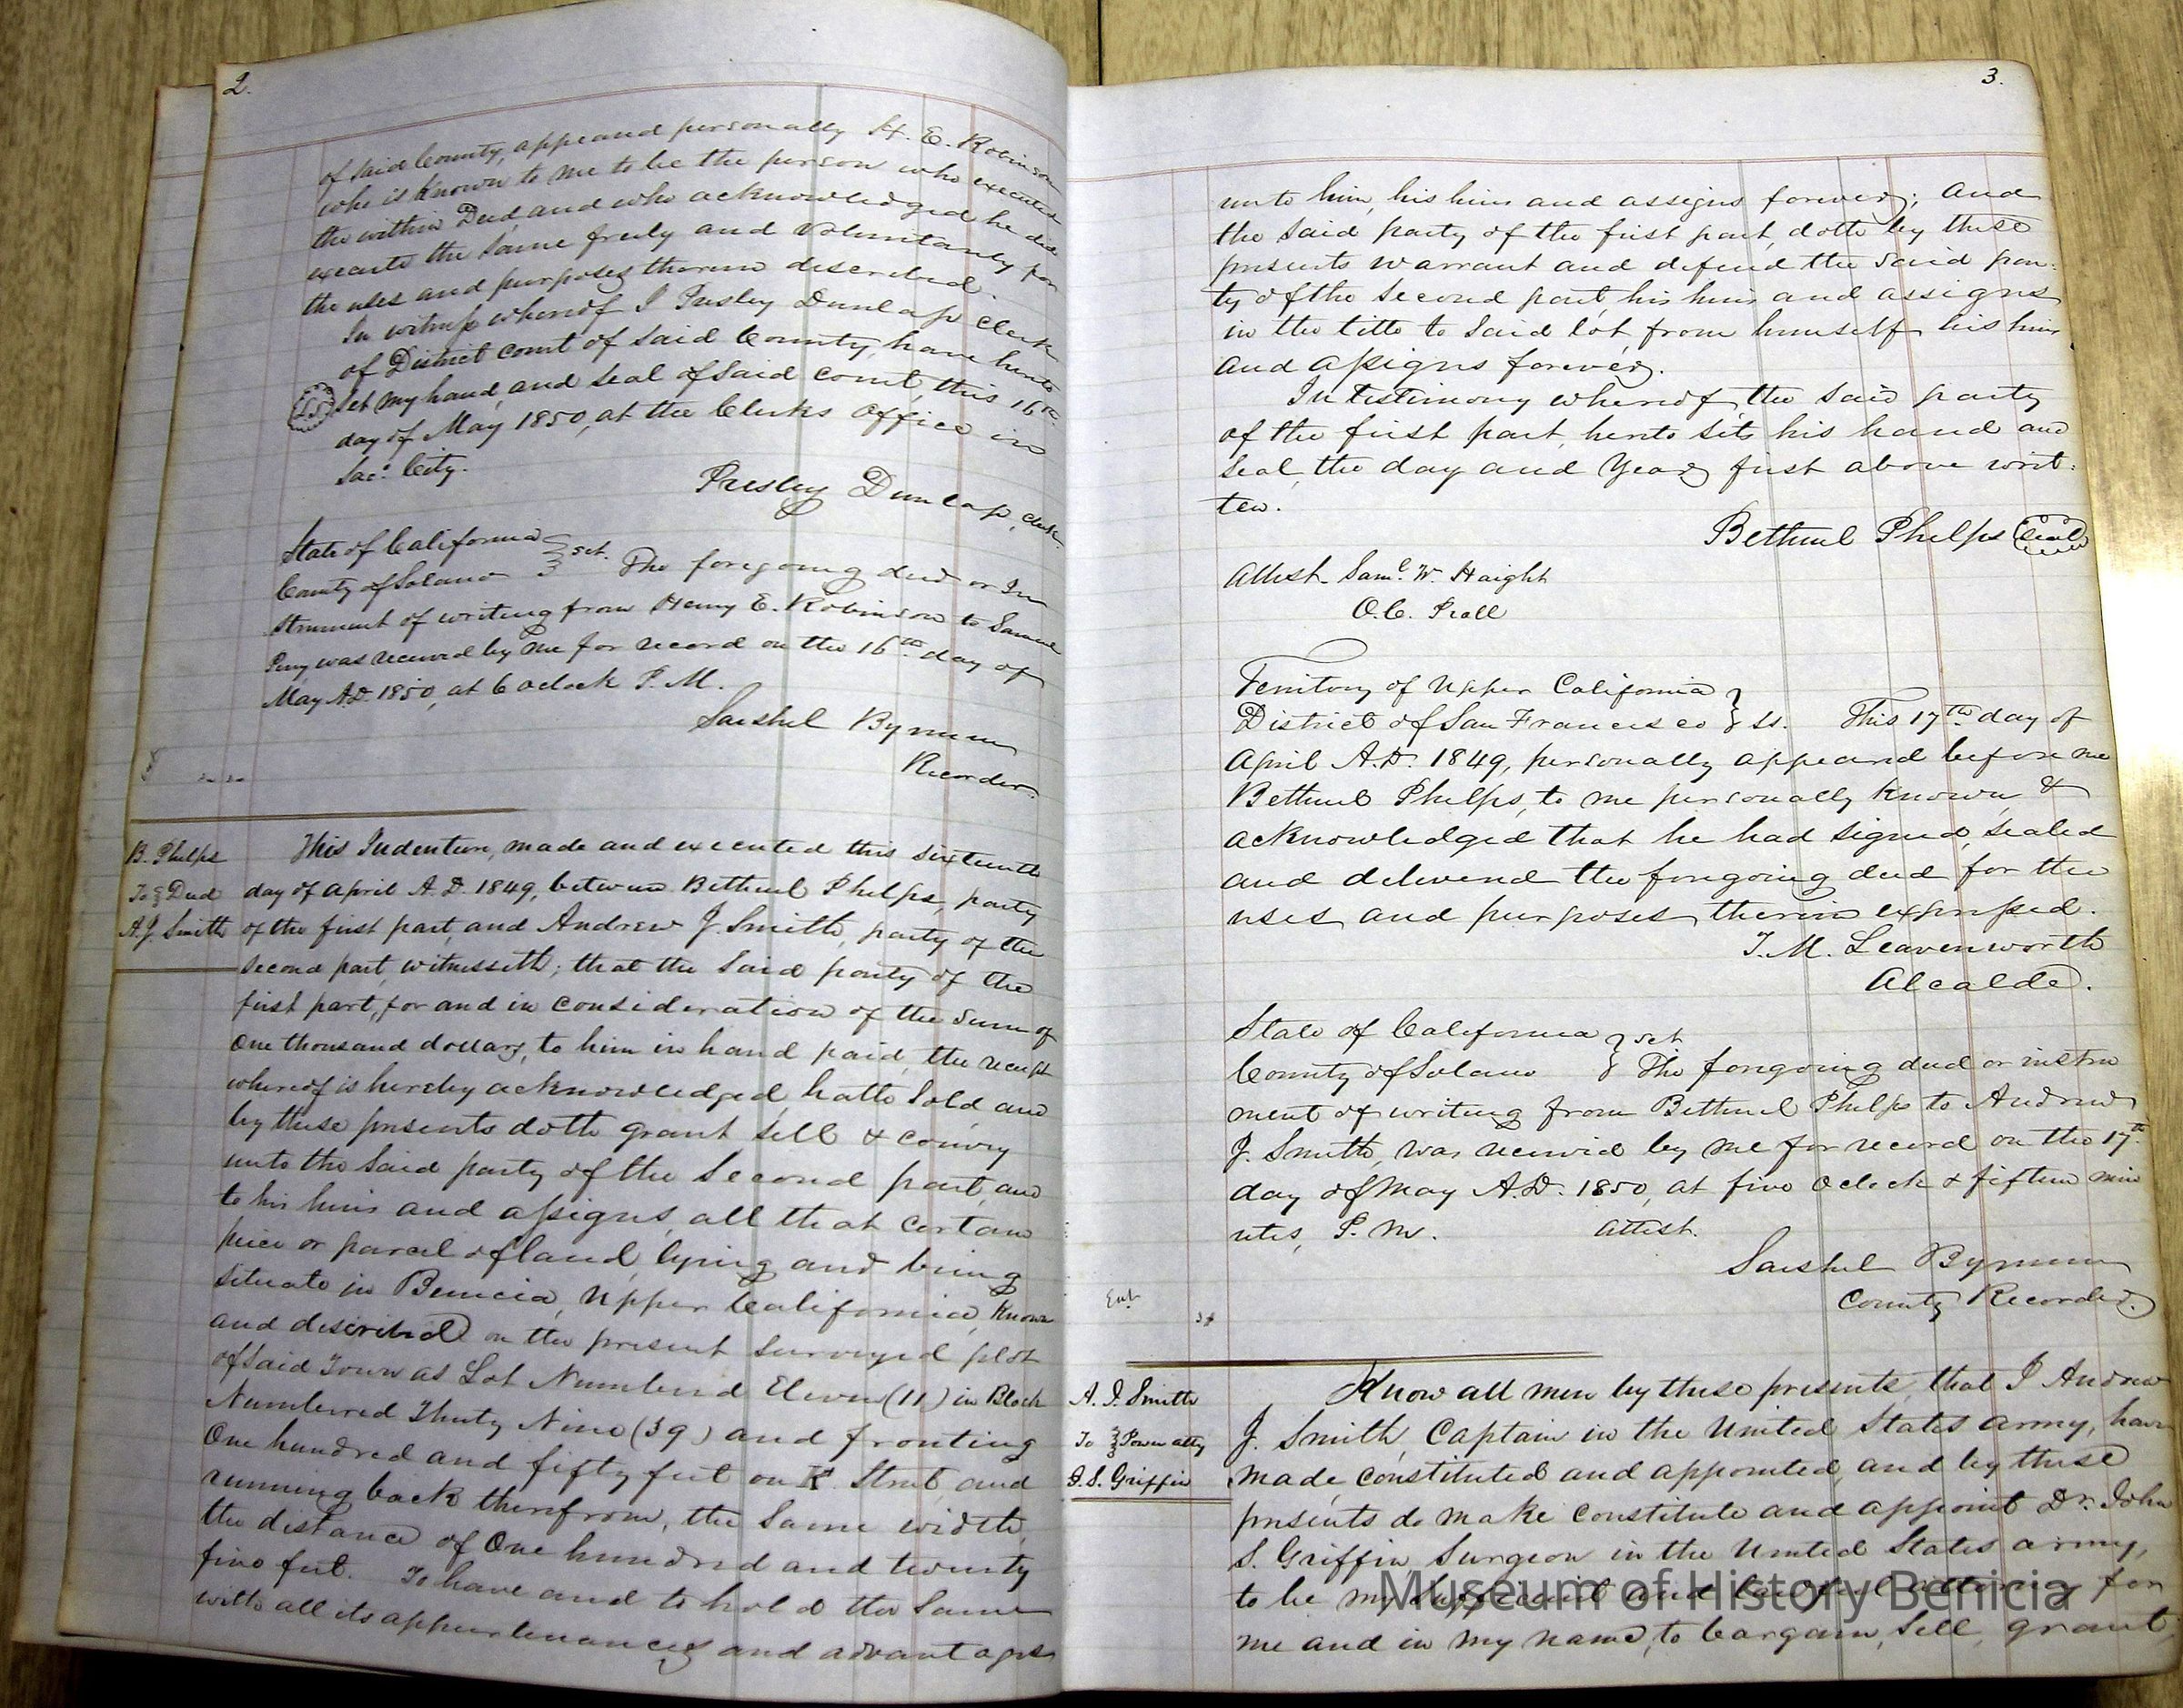 2.
of said County, appeared personally H. E. Robinson
who is Known to me to be the person who executed
the within Deed, and who acknowledged he did
execute the same freely and voluntarily for
the uses and purposes therein described.
In witness whereof I Presley Dunlap Clerk
of District Court of said County, have hereto
(LS) Set my hand, and seal of said court, this 16th
day of May 1850, at the Clerks Office in
Sac. City.
Presley Dunlap, Clerk.
State of California
County of Solano } sct. The foregoing deed or In
strument of writing from Henry E. Robinson to Samuel
Perry was received by me for record on the 16th day of
May A.D. 1850, at 6 oclock P. M.
Bynum
Recorder.
B. Phelps
To } Deed
A. J. Smith
This Indenture, made and executed this sixteenth
day of April A. D. 1849, between Bethuel Phelps, party
of the first part, and Andrew J. Smith, party of the
second part, witnesseth; that the said party of the
first part, for and in consideration of the sum of
One thousand dollars, to him in hand paid, the receipt
whereof is hereby acknowledged, hath sold and
by these presents doth grant, sell & convey
unto the said party of the second part, and
to his heirs and assigns, all that certain
piece or parcel of land, lying and being
situate in Benicia, Upper California, Known
and described on the present surveyed plot
of said Town as Lot Numbered Eleven (11) in Block
Numberred Thirty Nine (39) and fronting
One hundred and fifty feet on K. Street and
running back therefrom, the same width,
the distance of One hundred and twenty
five feet. To have and to hold the same
with all its appurtenances and advantages
3.
unto him, his heirs and assigns forever; and
the said party of the first part, doth by these
presents warrant and defend the said par-
ty of the second part, his heirs and assigns
in the title to said lot, from himself, his heirs
and assigns forever.
In testimony whereof, the said party
of the first part, hereto sets his hand and
seal, the day and Year first above writ-
ten.
Bethuel Phelps (Seal)
Attest. Saml. W. Haight
O. C. Prall
Territory of Upper California
District of San Francisco } ss. This 17th day of
April A.D. 1849, personally appeared before me
Bethuel Phelps, to me personally known, &
acknowledged that he had signed, sealed
and delivered the foregoing deed for the
uses and purposes therein expressed.
T. M. Leavenworth
Alcalde.
State of California
County of Solano } sct The foregoing deed or instru
ment of writing from Bethuel Phelps to Andrew
J. Smith, was received by me for record on the 17th
day of May A.D. 1850, at five Oclock & fifteen min
utes, P. M. Attest.
Bynum
County Recorder.
A. J. Smith
To } Power atty
J. S. Griffin
Know all men by these presents, that I Andrew
J. Smith, Captain in the United States army, have
made, constituted and appointed, and by these
presents do make constitute and appoint Dr. John
S. Griffin, Surgeon in the United States army,
to be my sufficient and lawful attorney for
me and in my name, to bargain, sell, grant,
Museum of History Benicia